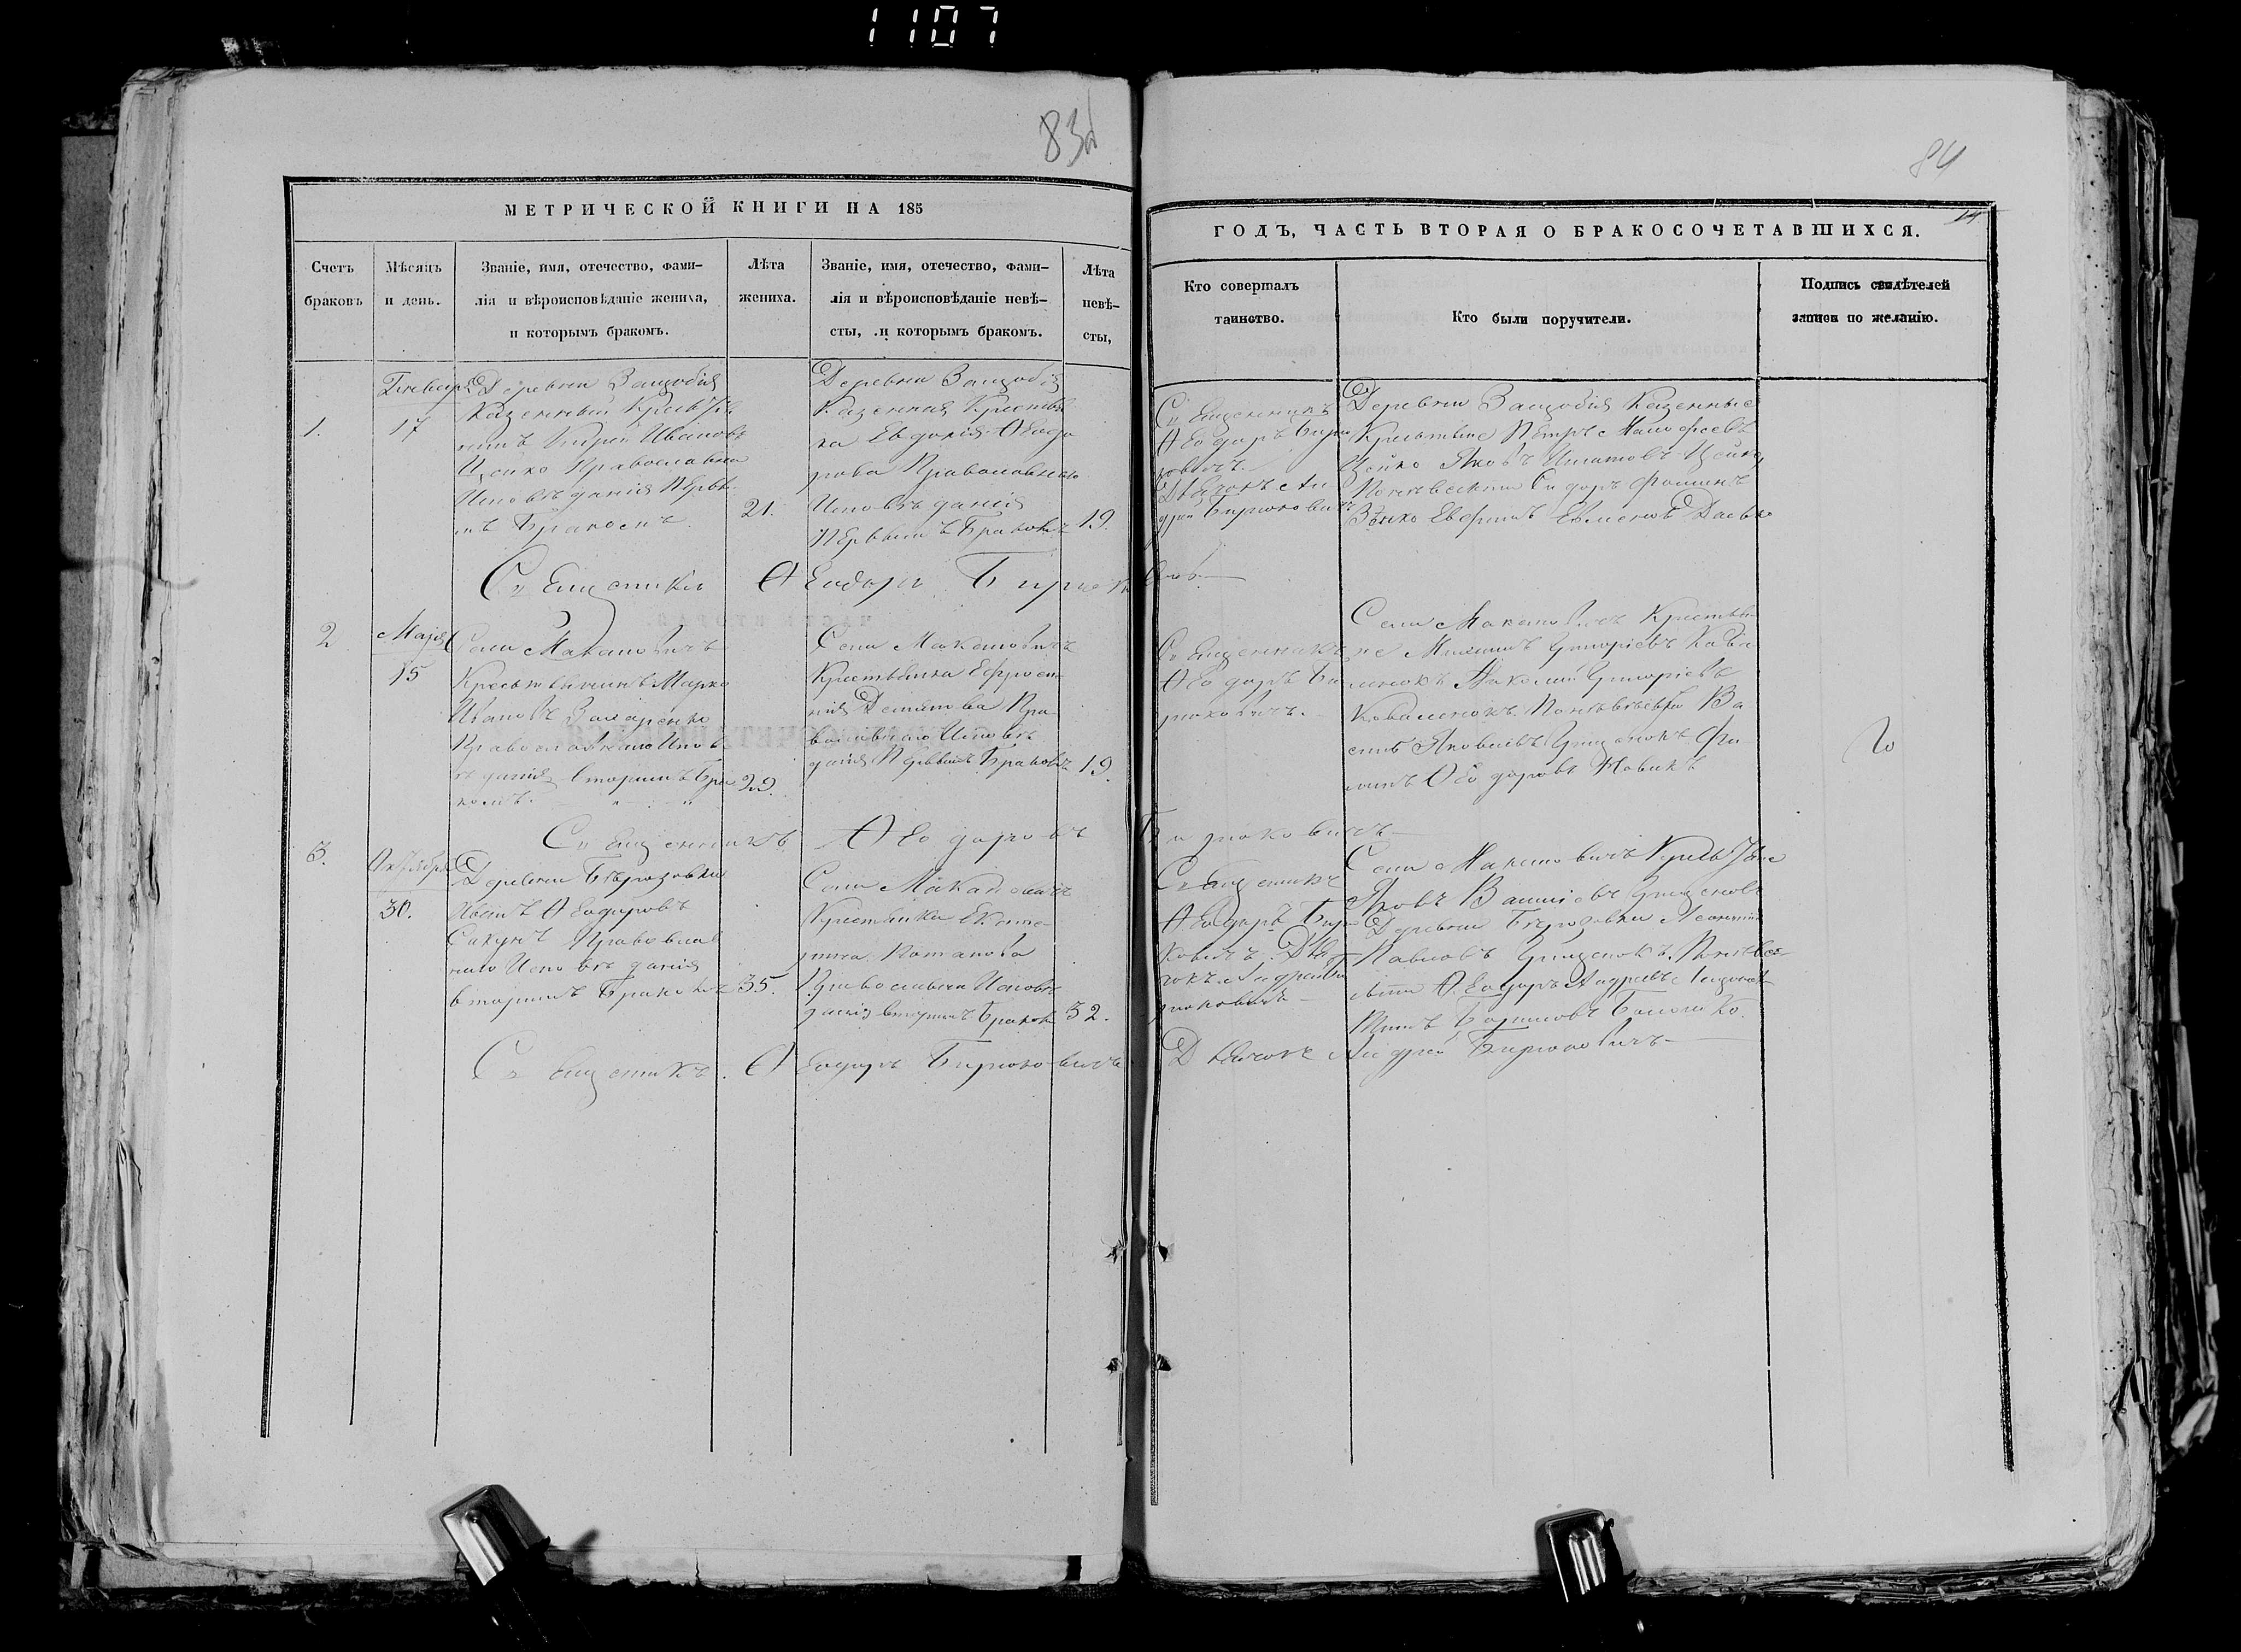 1107
83
84
МЕТРИЧЕСКОЙ КНИГИ НА 185
Счетъ браковъ
Мѣсяцъ и день.
Званіе, имя, отечество, фами-
лія и вѣроисповѣданіе жениха,
и которымъ бракомъ.
Лѣта жениха.
Званіе, имя, отечество, фами-
лія и вѣроисповѣданіе невѣ-
сты, и которымъ бракомъ.
Лѣта невѣ-
сты,
1.
Генваря
17
Деревни
Казенный Кресть
нинъ Иванов
Цейко Православна
Исповѣданія Первы
мъ Бракомъ
21.
Деревни
Казенная Крестья
ка Евдокія Ѳеодо
рова Православнаго
Исповѣданія
Первымъ Бракомъ
19.
Священникъ Ѳеодоръ Бирюк
2
Маія
15
Села Макановичъ
Крестьянинъ Марко
Ивановъ Захаренко
Православнаго Испов
ѣданія вторымъ Бра
комъ.
29.
Села Макановичъ
Крестьянка Ефроси
нія Дементова Пра
вославнаго Исповѣ
данія Первымъ Бракомъ
19.
Священникъ Ѳеодоръ
3.
Октября
30.
Деревни Берозовки
Иванъ Ѳеодоровъ
Сакунъ Православ
наго Исповѣданія
вторымъ Бракомъ
35.
Села Макановичъ
Крестьянка Екате
рина Потапова
Православна Исповѣ
данія вторымъ Браком
32.
Священникъ Ѳеодоръ Бирюковичъ
ГОДЪ, ЧАСТЬ ВТОРАЯ О БРАКОСОЧЕТАВШИХСЯ.
Кто совершалъ
таинство.
Кто были поручители.
Подпись свидѣтелей
записи по желанію.
Священникъ
Ѳеодоръ Бирю
ковичъ.
Дьячокъ Ан
дрей Бирюковичъ
Деревни Казенные
Крестьяне Петръ
Цейко Яковъ Игнатовъ Цейко
Сидоръ Фоминъ
Священникъ
Ѳеодоръ Би
рюковичъ.
Села Макановичъ Крестья
не Григоріевъ Кова
ленокъ Николай Григоріевъ
Коваленокъ Ва
силь Яковлевъ Грищенокъ Фи
липъ Ѳеодоровъ Новикъ
Бирюковичъ
Священникъ
Ѳеодоръ Бирю
ковичъ. Дья
чокъ Андрей Би
рюковичъ
Села Макановичъ Крестьяне
Яковъ Грищенокъ
Деревни Берозовки
Павловъ Грищенокъ.
Ѳеодоръ Андреевъ
Дьячокъ Андрей Бирюковичъ